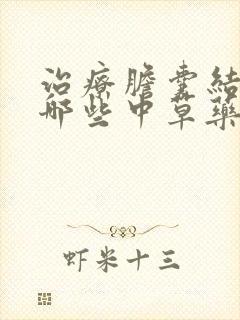 治療膽囊結
哪些中草藥
虾米十三